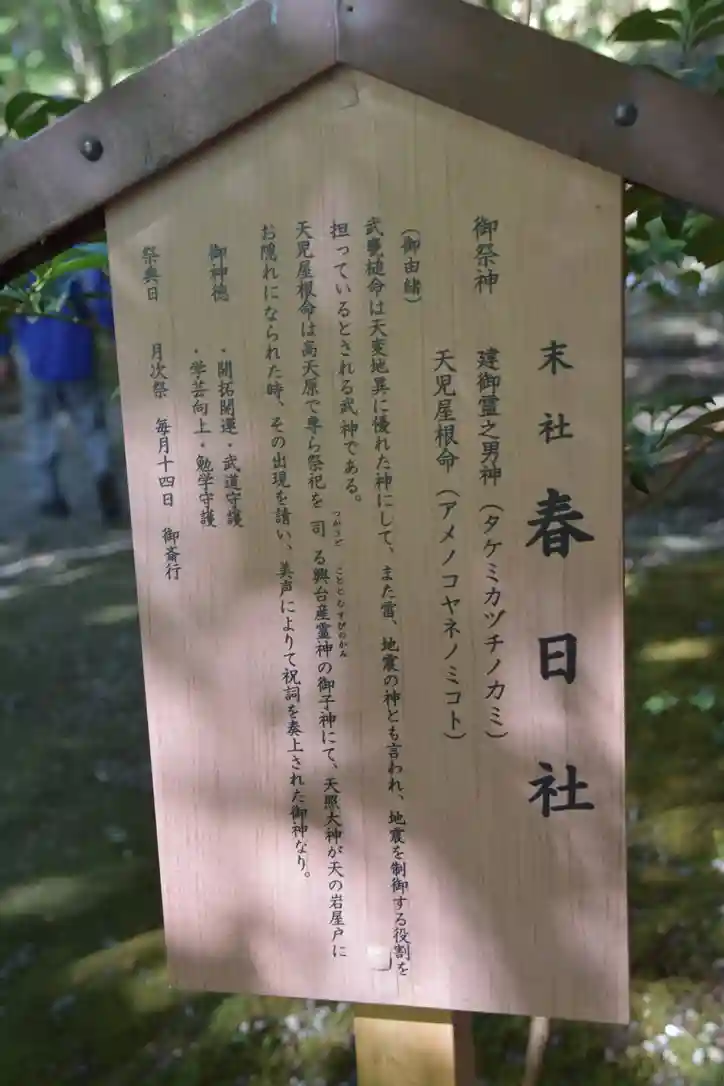 末社 春日社
御祭神 建御霊之男神（タケミカヅチノカミ）
天児屋根命（アメノコヤネノミコト）
（御由緒）
武甕槌命は天変地異に優れた神にして、また雷、地震の神とも言われ、地震を制御する役割を
担っているとされる武神である。
天児屋根命は高天原で専ら祭祀を司る興台産霊神の御子神にて、天照大神が天の岩屋戸に
つかさど
こととむすびのかみ
お隠れになられた時、その出現を請い、美声によりて祝詞を奏上された御神なり。
御神徳 ・開拓開運・武道守護
・学芸向上・勉学守護
祭典日 月次祭 毎月十四日 御斎行